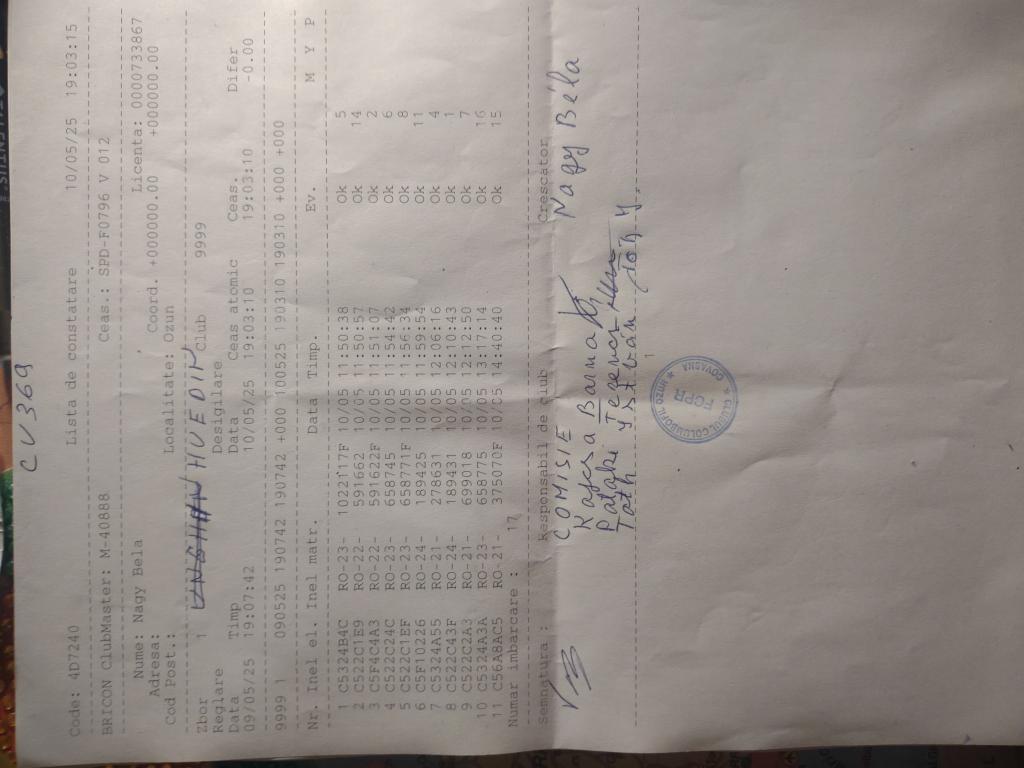 CV 369
Code: 4D7240 Lista de constatare 10/05/25 19:03:15
BRICON ClubMaster: M-40888 Ceas.: SPD-F0796 V 012
Nume: Nagy Bela Licenta: 0000733867
Adresa: Coord. +000000.00 +000000.00
Cod Post.: Localitate: Ozun
HUEDIN
Zbor 1 Club 9999
Reglare Desigilare
Data Timp Data Ceas atomic Ceas. Difer
09/05/25 19:07:42 10/05/25 19:03:10 19:03:10 -0.00
9999 1 090525 190742 190742 +000 100525 190310 190310 +000 +000
Nr. Inel el. Inel matr. Data Timp. Ev. M Y P
1 C5324B4C RO-23- 1022117F 10/05 11:50:38 Ok 5
2 C522C1E9 RO-22- 591662 10/05 11:50:57 Ok 14
3 C5F4C4A3 RO-22- 591622F 10/05 11:51:07 Ok 2
4 C522C24C RO-23- 658745 10/05 11:54:42 Ok 6
5 C522C1EF RO-23- 658771F 10/05 11:56:34 Ok 8
6 C5510226 RO-24- 189425 10/05 11:59:54 Ok 11
7 C5324A55 RO-21- 278631 10/05 12:06:16 Ok 4
8 C522C43F RO-24- 189431 10/05 12:10:43 Ok 1
9 C522C2A3 RO-21- 699018 10/05 12:12:50 Ok 7
10 C5324A3A RO-23- 658775 10/05 13:17:14 Ok 16
11 C56A8AC5 RO-21- 375070F 10/05 14:40:40 Ok 15
Numar imbarcare : 17
Semnatura : Responsabil de club Crescator
COMISIE Nagy Béla
Kajcsa Barna
Pataki Jenő
Toth István
1
CLUBUL COLUMBOFIL
FCPR
COVASNA